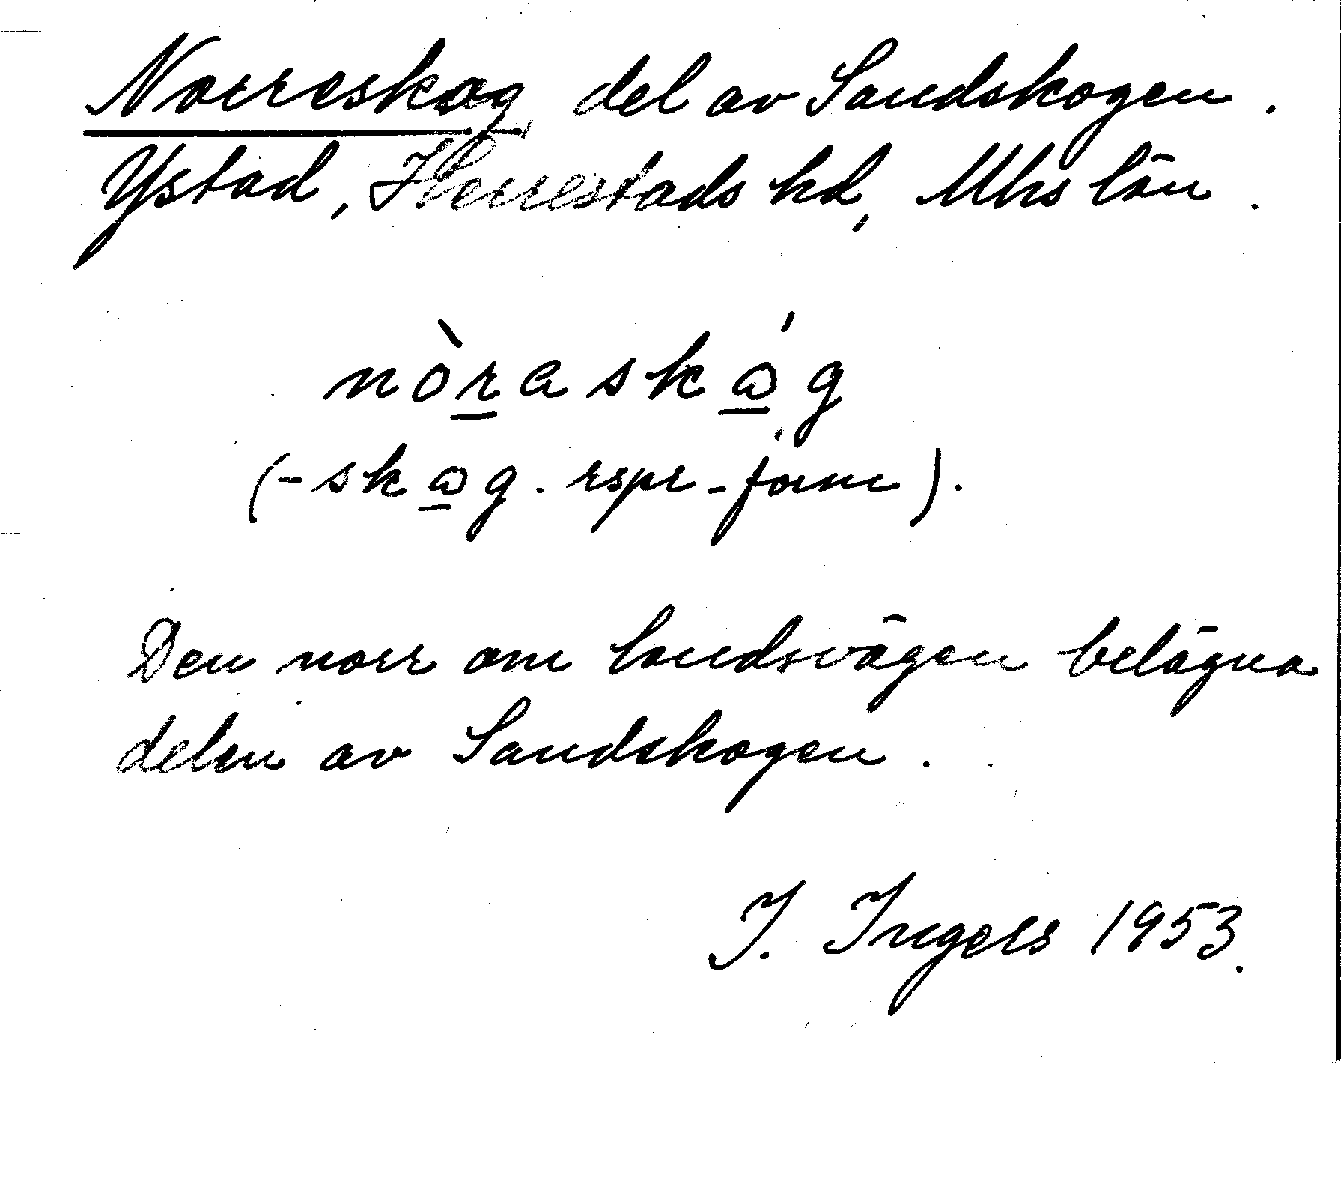 Norreskog del av Sandskogen.
Ystad, Herrestads hd, Mhs län.
nòraskóg
(-skog. rspr-form).
Den norr om landsvägen belägna
delen av Sandskogen.
I. Ingers 1953.